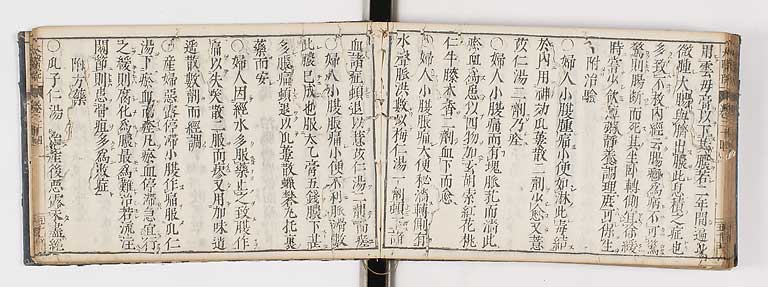 用雲母膏以下其膿若二三年間遇有
微腫大腸與臍出膿此乃積之症也
多致不救內經云腸癰為病不可驚
驚則腸斷而死其坐臥轉側宜徐緩
時常少飲薄粥靜養調理庶可保生
附治驗
○婦人小腹腫痛小便如淋此毒結
於內用神功散二劑少愈又薏
苡仁湯二劑乃痊
○婦人小腹痛而有塊脈芤而濇此
瘀血為患以四物加玄胡索紅花桃
仁牛膝木香二劑血下而愈
○婦人小腹脹痛大便秘濇轉側有
水聲脈洪數以梅仁湯一劑頓下瘀
血諸症頓退以薏苡仁湯二劑而痊
○婦人小腹脹痛小便不利脈滑數
此膿已成也服太乙膏五錢膿下甚
多脹痛頓退以瓜蔞散蠟礬丸托裏
藥而安
○婦人因經水多服藥止之致腹作
痛以失笑散二服而瘳又用加味逍
遙散數劑而經調
○產婦惡露停滯小腹作痛服瓜仁
湯下瘀血而痊凡瘀血停滯急宜行
之緩則腐化為膿最為難治若流注
關節則患骨疽多為敗症
附方藥
○瓜子仁湯 治產後惡露未盡經